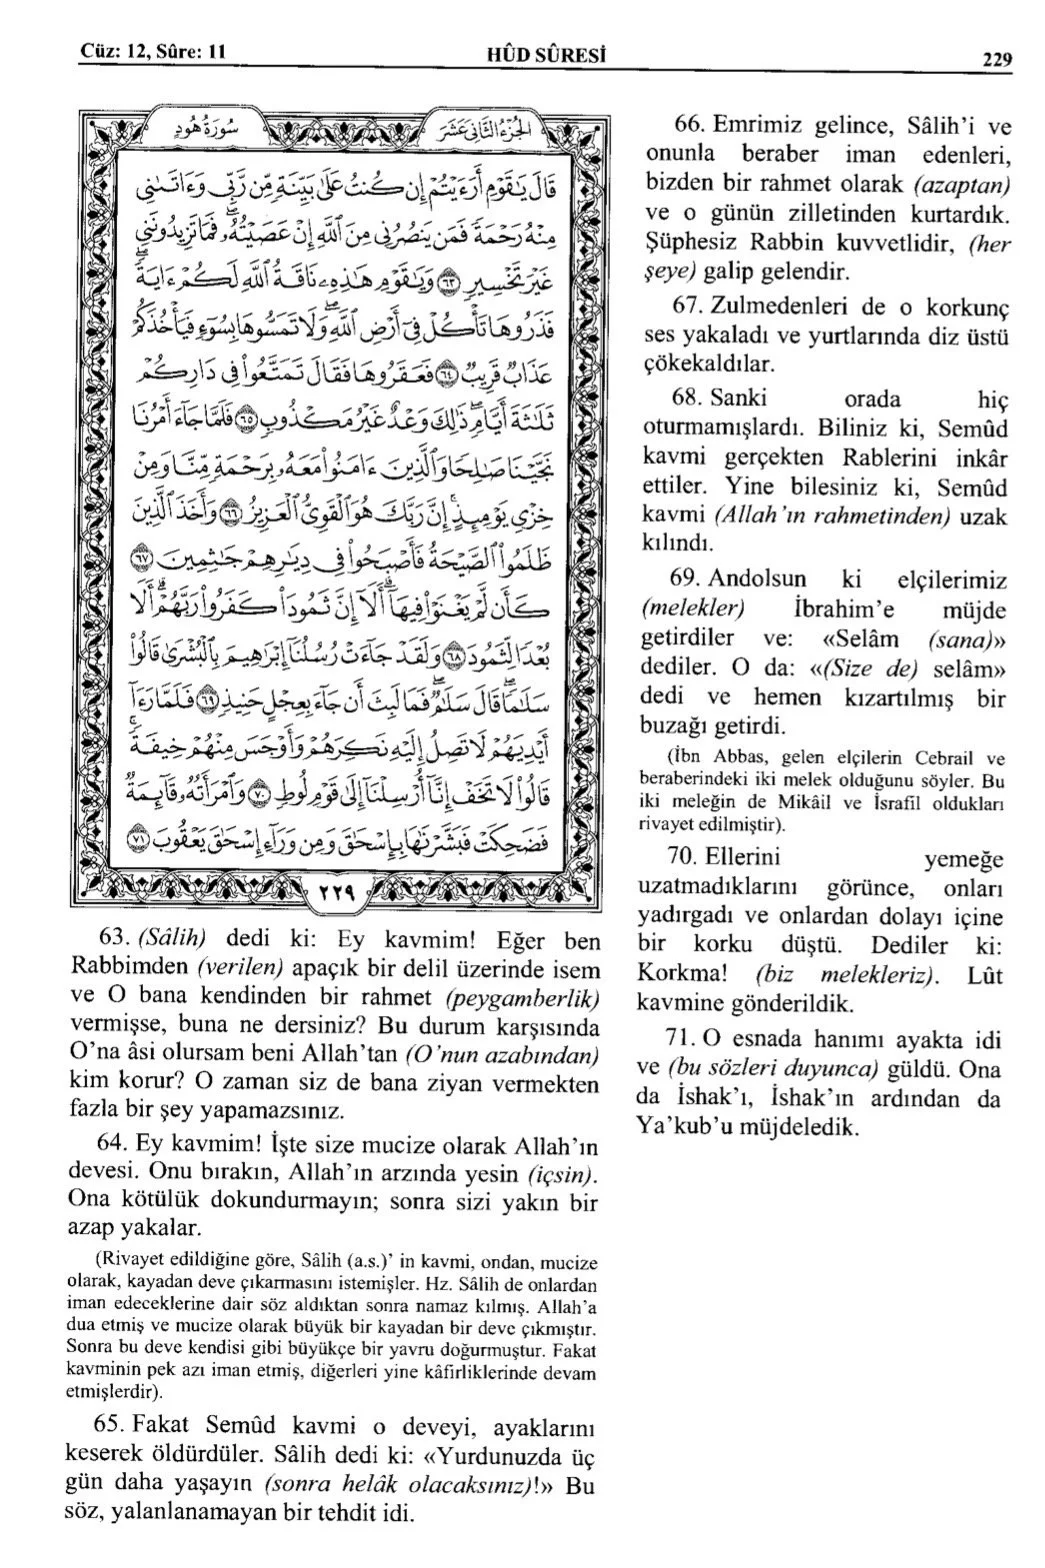 Cüz: 12, Sûre: 11
HÛD SÛRESİ
229
سُورَةُ هُودٍ
الجُزْءُ الثَّانِىَ عَشَرَ
قَالَ يَٰقَوْمِ أَرَءَيْتُمْ إِن كُنتُ عَلَىٰ بَيِّنَةٍ مِّن رَّبِّى وَءَاتَىٰنِى
مِنْهُ رَحْمَةً فَمَن يَنصُرُنِى مِنَ ٱللَّهِ إِنْ عَصَيْتُهُۥ فَمَا تَزِيدُونَنِى
غَيْرَ تَخْسِيرٍ ٦٣ وَيَٰقَوْمِ هَٰذِهِۦ نَاقَةُ ٱللَّهِ لَكُمْ ءَايَةً
فَذَرُوهَا تَأْكُلْ فِىٓ أَرْضِ ٱللَّهِ وَلَا تَمَسُّوهَا بِسُوٓءٍ فَيَأْخُذَكُمْ
عَذَابٌ قَرِيبٌ ٦٤ فَعَقَرُوهَا فَقَالَ تَمَتَّعُوا۟ فِى دَارِكُمْ
ثَلَٰثَةَ أَيَّامٍ ذَٰلِكَ وَعْدٌ غَيْرُ مَكْذُوبٍ ٦٥ فَلَمَّا جَآءَ أَمْرُنَا
نَجَّيْنَا صَٰلِحًا وَٱلَّذِينَ ءَامَنُوا۟ مَعَهُۥ بِرَحْمَةٍ مِّنَّا وَمِنْ
خِزْىِ يَوْمِئِذٍ إِنَّ رَبَّكَ هُوَ ٱلْقَوِىُّ ٱلْعَزِيزُ ٦٦ وَأَخَذَ ٱلَّذِينَ
ظَلَمُوا۟ ٱلصَّيْحَةُ فَأَصْبَحُوا۟ فِى دِيَٰرِهِمْ جَٰثِمِينَ ٦٧
كَأَن لَّمْ يَغْنَوْا۟ فِيهَآ أَلَآ إِنَّ ثَمُودَا۟ كَفَرُوا۟ رَبَّهُمْ أَلَا
بُعْدًا لِّثَمُودَ ٦٨ وَلَقَدْ جَآءَتْ رُسُلُنَآ إِبْرَٰهِيمَ بِٱلْبُشْرَىٰ قَالُوا۟
سَلَٰمًا قَالَ سَلَٰمٌ فَمَا لَبِثَ أَن جَآءَ بِعِجْلٍ حَنِيذٍ ٦٩ فَلَمَّا رَءَآ
أَيْدِيَهُمْ لَا تَصِلُ إِلَيْهِ نَكِرَهُمْ وَأَوْجَسَ مِنْهُمْ خِيفَةً
قَالُوا۟ لَا تَخَفْ إِنَّآ أُرْسِلْنَآ إِلَىٰ قَوْمِ لُوطٍ ٧٠ وَٱمْرَأَتُهُۥ قَآئِمَةٌ
فَضَحِكَتْ فَبَشَّرْنَٰهَا بِإِسْحَٰقَ وَمِن وَرَآءِ إِسْحَٰقَ يَعْقُوبَ ٧١
٢٢٩
63. (Sâlih) dedi ki: Ey kavmim! Eğer ben
Rabbimden (verilen) apaçık bir delil üzerinde isem
ve O bana kendinden bir rahmet (peygamberlik)
vermişse, buna ne dersiniz? Bu durum karşısında
O'na âsi olursam beni Allah'tan (O'nun azabından)
kim korur? O zaman siz de bana ziyan vermekten
fazla bir şey yapamazsınız.
64. Ey kavmim! İşte size mucize olarak Allah'ın
devesi. Onu bırakın, Allah'ın arzında yesin (içsin).
Ona kötülük dokundurmayın; sonra sizi yakın bir
azap yakalar.
(Rivayet edildiğine göre, Sâlih (a.s.)' in kavmi, ondan, mucize
olarak, kayadan deve çıkarmasını istemişler. Hz. Sâlih de onlardan
iman edeceklerine dair söz aldıktan sonra namaz kılmış. Allah'a
dua etmiş ve mucize olarak büyük bir kayadan bir deve çıkmıştır.
Sonra bu deve kendisi gibi büyükçe bir yavru doğurmuştur. Fakat
kavminin pek azı iman etmiş, diğerleri yine kâfirliklerinde devam
etmişlerdir).
65. Fakat Semûd kavmi o deveyi, ayaklarını
keserek öldürdüler. Sâlih dedi ki: «Yurdunuzda üç
gün daha yaşayın (sonra helâk olacaksınız)!» Bu
söz, yalanlanamayan bir tehdit idi.
66. Emrimiz gelince, Sâlih'i ve
onunla beraber iman edenleri,
bizden bir rahmet olarak (azaptan)
ve o günün zilletinden kurtardık.
Şüphesiz Rabbin kuvvetlidir, (her
şeye) galip gelendir.
67. Zulmedenleri de o korkunç
ses yakaladı ve yurtlarında diz üstü
çökekaldılar.
68. Sanki orada hiç
oturmamışlardı. Biliniz ki, Semûd
kavmi gerçekten Rablerini inkâr
ettiler. Yine bilesiniz ki, Semûd
kavmi (Allah'ın rahmetinden) uzak
kılındı.
69. Andolsun ki elçilerimiz
(melekler) İbrahim'e müjde
getirdiler ve: «Selâm (sana)»
dediler. O da: «(Size de) selâm»
dedi ve hemen kızartılmış bir
buzağı getirdi.
(İbn Abbas, gelen elçilerin Cebrail ve
beraberindeki iki melek olduğunu söyler. Bu
iki meleğin de Mikâil ve İsrafil oldukları
rivayet edilmiştir).
70. Ellerini yemeğe
uzatmadıklarını görünce, onları
yadırgadı ve onlardan dolayı içine
bir korku düştü. Dediler ki:
Korkma! (biz melekleriz). Lût
kavmine gönderildik.
71. O esnada hanımı ayakta idi
ve (bu sözleri duyunca) güldü. Ona
da İshak'ı, İshak'ın ardından da
Ya'kub'u müjdeledik.